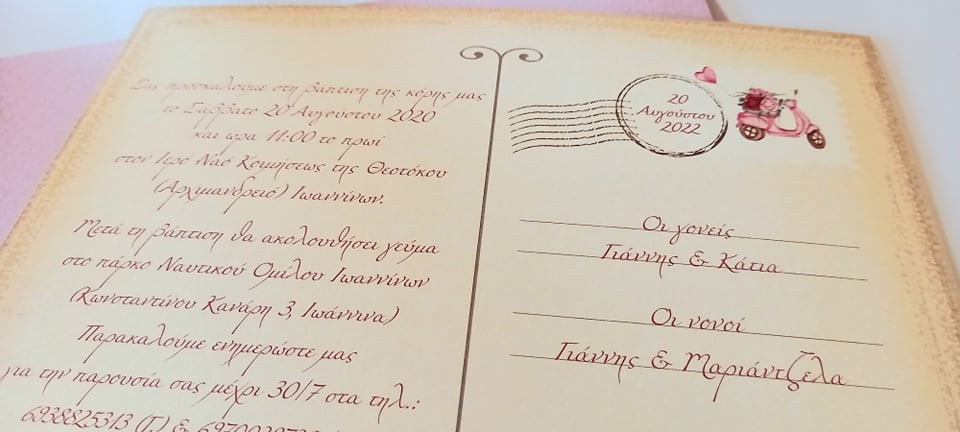 Σας προσκαλούμε στη βάπτιση της κόρης μας
το Σάββατο 20 Αυγούστου 2020
και ώρα 11:00 το πρωί
στον Ιερό Ναό Κοιμήσεως της Θεοτόκου
(Αρχιμανδρειό) Ιωαννίνων.
Μετά τη βάπτιση θα ακολουθήσει γεύμα
στο πάρκο Ναυτικού Ομίλου Ιωαννίνων
(Κωνσταντίνου Κανάρη 3, Ιωάννινα)
Παρακαλούμε ενημερώστε μας
για την παρουσία σας μέχρι 30/7 στα τηλ.:
6938825313 (Γ.) &
20
Αυγούστου
2022
Οι γονείς
Γιάννης & Κάτια
Οι νονοί
Γιάννης & Μαριάντζελα